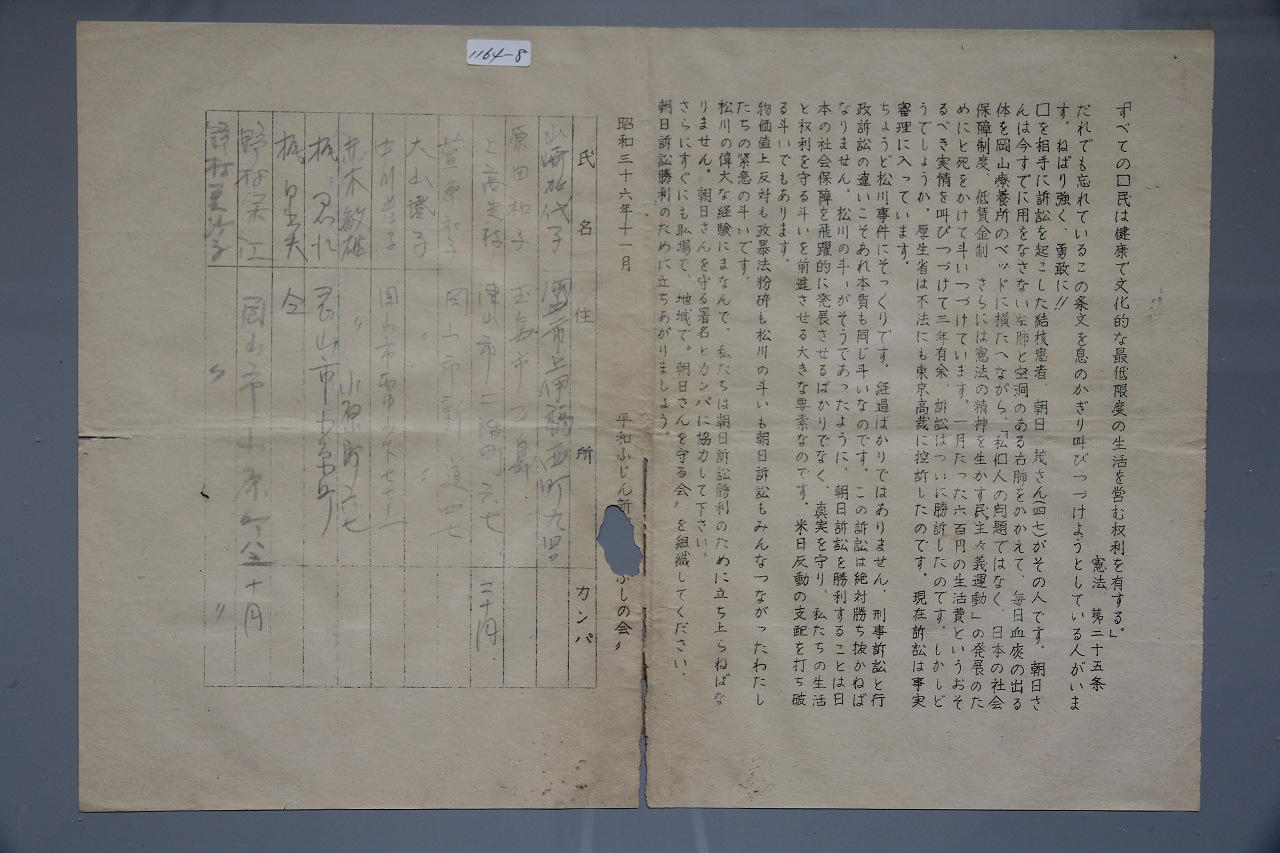 1164-8
「すべての□民は健康で文化的な最低限度の生活を営む権利を有する。」
憲法 第二十五条
だれでも忘れているこの条文を息のかぎり叫びつづけようとしている人がいま
す。ねばり強く、勇敢に!!
□を相手に訴訟を起こした結核患者、朝日 茂さん(四七)がその人です。朝日さ
んは今すでに用をなさない左肺と空洞のある右肺をかかえて、毎日血痰の出る
体を岡山療養所のベッドに横たへながら、「私個人の問題ではなく、日本の社会
保障制度、低賃金制 さらには憲法の精神を生かす民主々義運動」の発展のた
めにと死をかけて斗いつづけています。一月たった六百円の生活費というおそ
るべき実情を叫びつづけて三年有余、訴訟はついに勝訴したのです。しかしど
うでしょうか。厚生省は不法にも東京高裁に控訴したのです。現在訴訟は事実
審理に入っています。
ちょうど松川事件にそっくりです。経過ばかりではありません、刑事訴訟と行
政訴訟の違いこそあれ本質も同じ斗いなのです。この訴訟は絶対勝ち抜かねば
なりません。松川の斗いがそうであったように、朝日訴訟を勝利することは日
本の社会保障を飛躍的に発展させるばかりでなく、真実を守り、私たちの生活
と权利を守る斗いを前進させる大きな要素なのです。米日反動の支配を打ち破
る斗いでもあります。
物価値上反対も政暴法粉砕も松川の斗いも朝日訴訟もみんなつながったわたし
たちの緊急の斗いです。
松川の偉大な経験にまなんで、私たちは朝日訴訟勝利のために立ち上らねばな
りません。朝日さんを守る署名とカンパに協力して下さい。
さらにすぐにも职場で、地域で。朝日さんを守る会〃を組織してください。
朝日訴訟勝利のために立ちあがりましょう。
昭和三十六年十一月
平和ふじん新 ふしの会〃
氏名 住所 カンパ
山崎 代子 上伊福西町九四
原田和子 玉島市
津山市二階町六七 三十円
萱原和子 岡山市新道四七
大山 子 〃
中川 子 岡山市
赤木敏雄 〃 小原町六七
梶 岡山市小原町
梶 夫 仝
野村 江 岡山市小原町 十円
野村美沙子 〃 〃